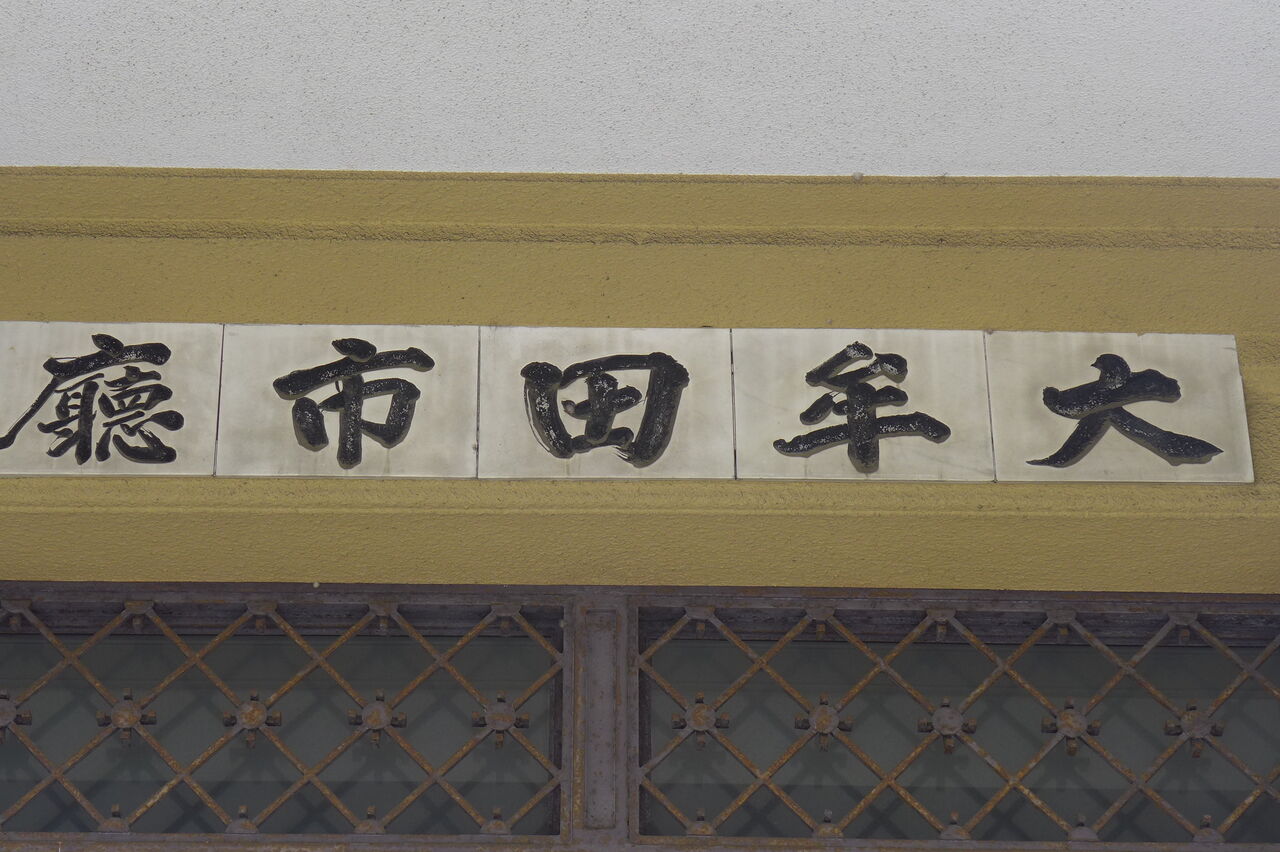 大牟田市廳